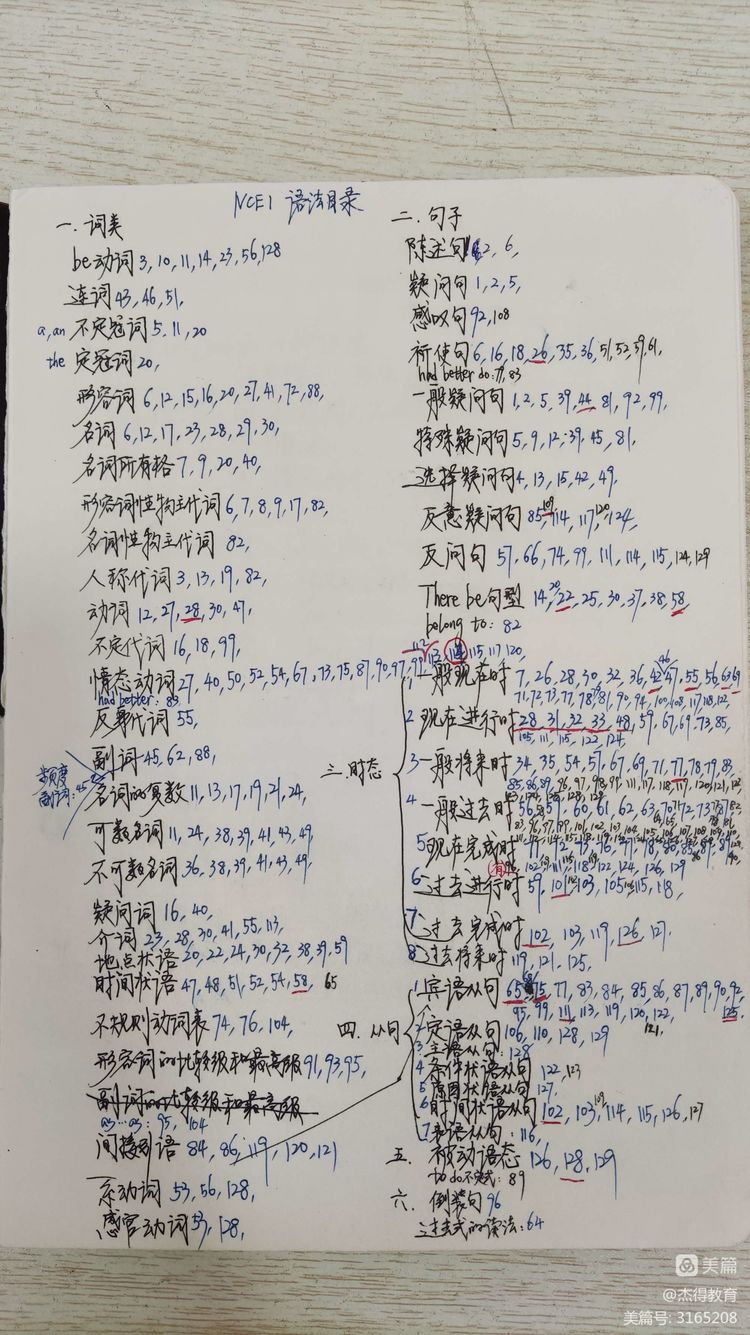 NCE1 语法目录
一.词类
be动词 3, 10, 11, 14, 23, 56, 128
连词 43, 46, 51,
a, an 不定冠词 5, 11, 20
the 定冠词 20,
形容词 6, 12, 15, 16, 20, 27, 41, 72, 88,
名词 6, 12, 17, 23, 28, 29, 30,
名词所有格 7, 9, 20, 40,
形容词性物主代词 6, 7, 8, 9, 17, 82,
名词性物主代词 82,
人称代词 3, 13, 19, 82,
动词 12, 27, 28, 30, 47,
不定代词 16, 18, 99,
情态动词 27, 40, 50, 52, 54, 67, 73, 75, 87, 90, 97,
had better: 83
反身代词 55,
副词 45, 62, 88,
名词的复数 11, 13, 17, 19, 21, 24,
可数名词 11, 24, 38, 39, 41, 43, 49,
不可数名词 36, 38, 39, 41, 43, 49,
疑问词 16, 40,
介词 23, 28, 30, 41, 55, 113,
地点状语 20, 22, 24, 30, 32, 38, 39, 59
时间状语 47, 48, 51, 52, 54, 58, 65
不规则动词表 74, 76, 104,
形容词的比较级和最高级 91, 93, 95,
副词的比较级和最高级
as…as: 95, 104
间接引语 84, 86, 119, 120, 121
系动词 53, 56, 128,
感官动词 53, 128,
二.句子
陈述句 2, 6,
疑问句 1, 2, 5,
感叹句 92, 108
祈使句 6, 16, 18, 26, 35, 36, 51, 52, 59, 61,
had better do: 71, 83
一般疑问句 1, 2, 5, 39, 44, 81, 92, 99,
特殊疑问句 5, 9, 12, 39, 45, 81,
选择疑问句 4, 13, 15, 42, 49,
反意疑问句 85, 109, 114, 117, 120, 124,
反问句 57, 66, 74, 99, 111, 114, 115, 124, 129
There be句型 14, 20, 22, 25, 30, 37, 38, 58,
belong to: 82
三.时态
一般现在时 7, 26, 28, 30, 32, 36, 42, 46, 47, 55, 56, 63, 69
71, 72, 73, 77, 78, 81, 90, 94, 100, 108, 117, 118, 112,
2 现在进行时 28, 31, 32, 33, 48, 59, 67, 69, 73, 85,
105, 111, 115, 122, 124,
3 一般将来时 34, 35, 54, 57, 67, 69, 71, 77, 78, 79, 83,
85, 86, 89, 96, 97, 98, 99, 111, 117, 118, 119, 120, 121, 122
4 一般过去时 56, 58, 57, 60, 61, 62, 63, 70, 71, 72, 73
5 现在完成时
6 过去进行时 59, 101, 112, 103, 105, 115, 118,
7 过去完成时 102, 103, 119, 126, 127,
8 过去将来时 119, 121, 125,
四.从句
1 宾语从句 65, 75, 77, 83, 84, 85, 86, 87, 89, 90, 92,
95, 99, 111, 113, 119, 120, 122, 125,
2 定语从句 106, 110, 128, 129 121,
3 主语从句: 128
4 条件状语从句 122, 123
5 原因状语从句 127,
6 时间状语从句 102, 103, 109, 114, 115, 126, 127
7 表语从句: 116,
五. 被动语态 126, 128, 129
to do不定式: 89
六. 倒装句 96
过去式的读法: 64
美篇
@杰得教育
美篇号: 3165208